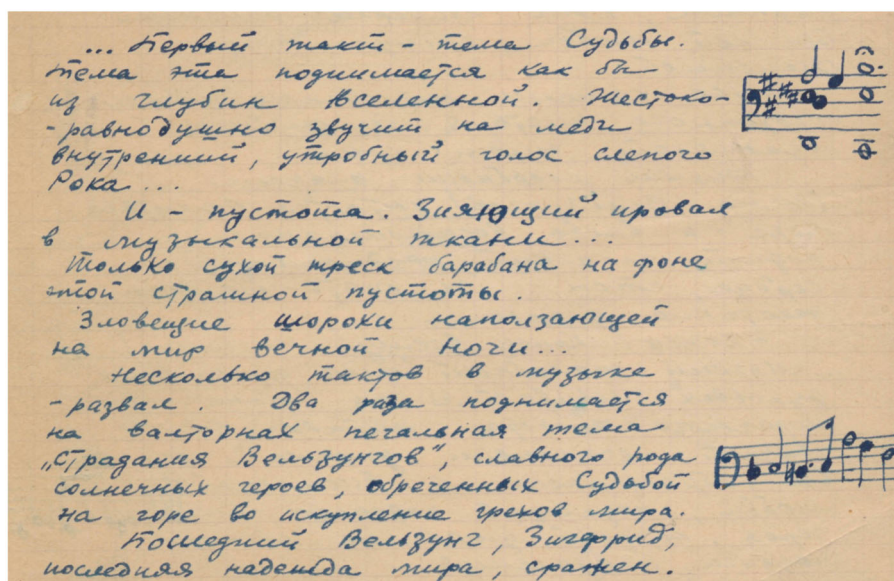 ... Первый такт - тема Судьбы.
Тема эта поднимается как бы
из глубин Вселенной. Жестоко-
-равнодушно звучит на меди
внутренний, утробный голос слепого
Рока...
И - пустота. Зияющий провал
в музыкальной ткани...
Только сухой треск барабана на фоне
этой страшной пустоты.
Зловещие шорохи наползающей
на мир вечной ночи...
Несколько тактов в музыке
- развал. Два раза поднимается
на валторнах печальная тема
„Страдания Вельзунгов", славного рода
солнечных героев, обреченных Судьбой
на горе во искупление грехов мира.
Последний Вельзунг, Зигфрид,
последняя надежда мира, сражен.